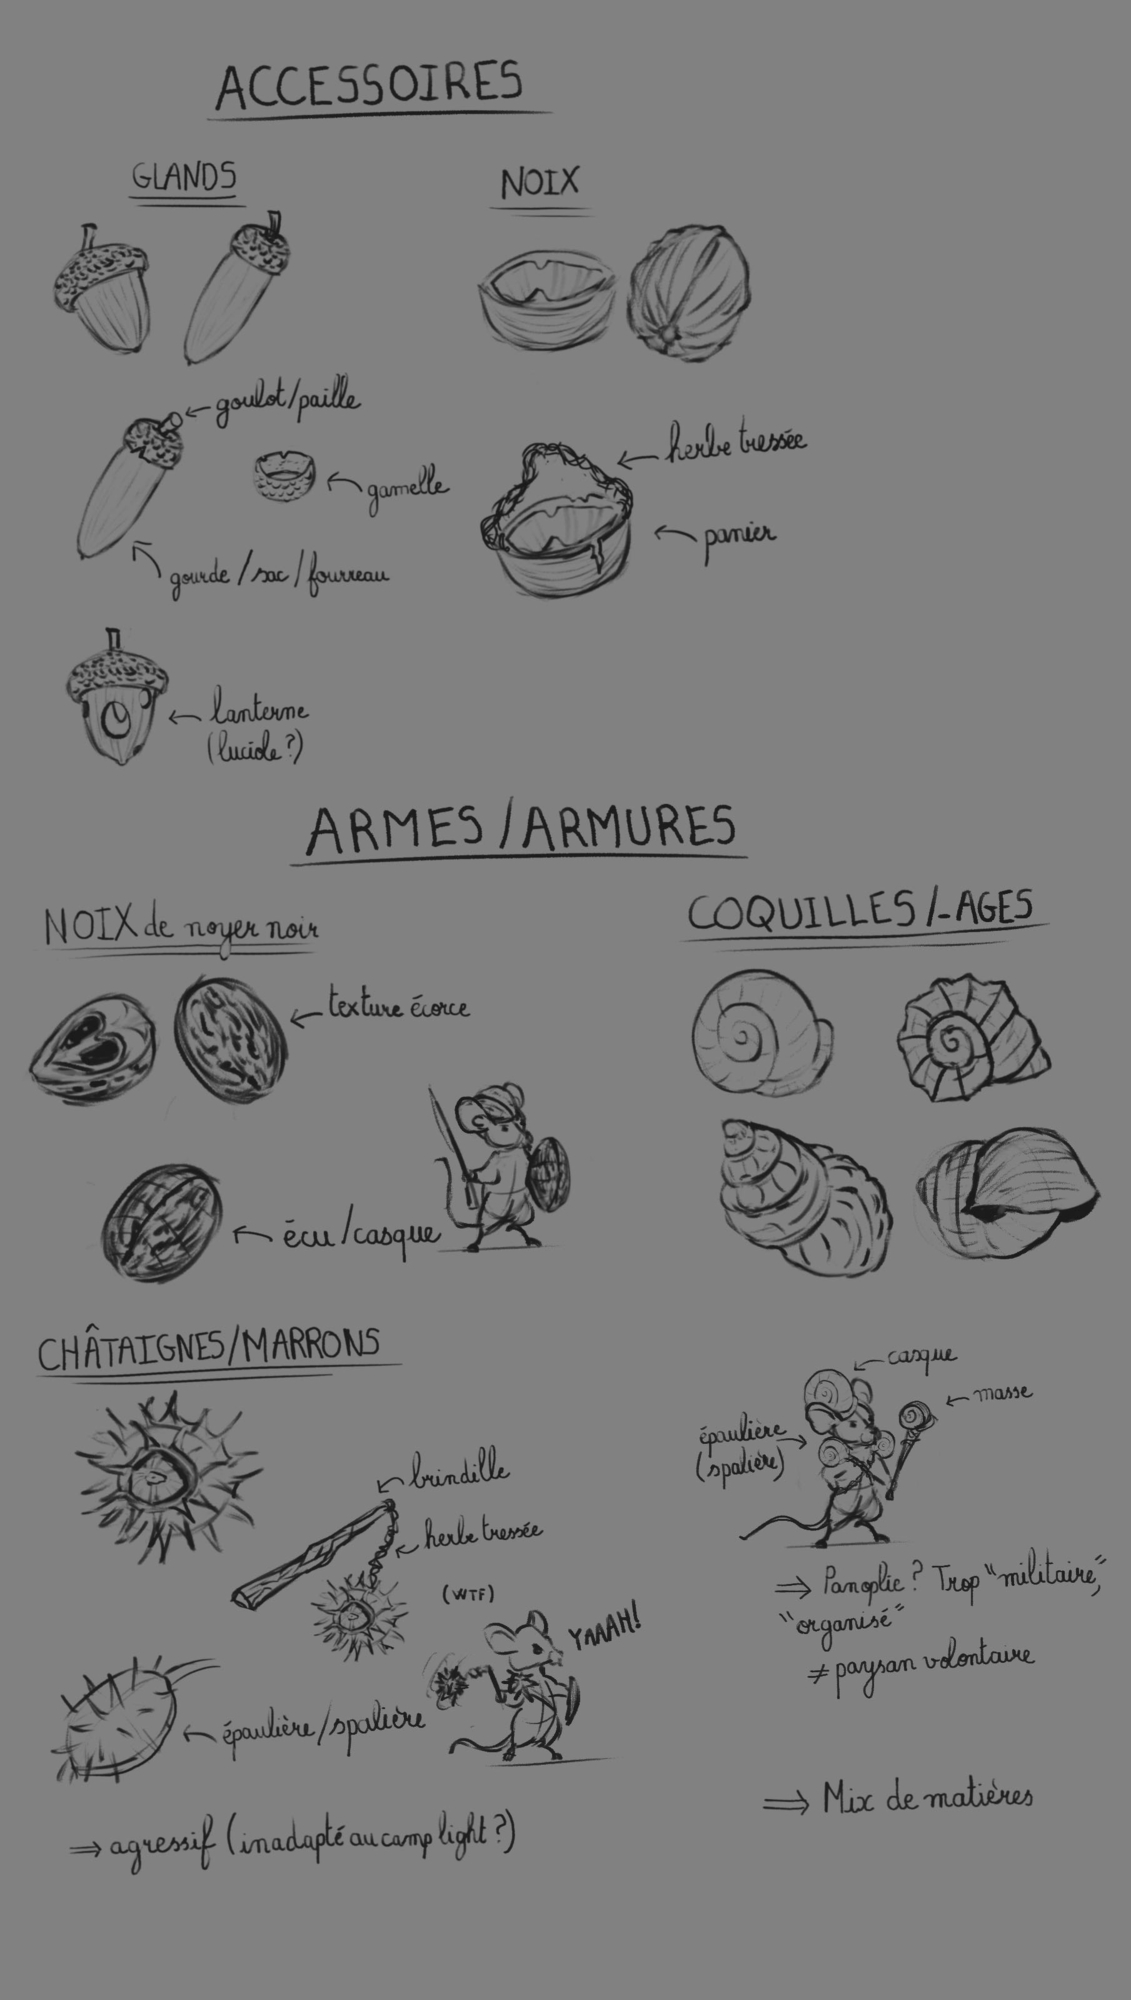 ACCESSOIRES
GLANDS
NOIX
goulot/paille
gamelle
gourde/sac/fourreau
herbe tressée
panier
lanterne
(luciole?)
ARMES/ARMURES
NOIX de noyer noir
texture écorce
écu/casque
COQUILLES/-AGES
CHÂTAIGNES/MARRONS
brindille
herbe tressée
(WTF)
YAAAH!
épaulière/spalière
⇒ agressif (inadapté au camp light?)
casque
masse
épaulière
(spalière)
⇒ Panoplie? Trop "militaire",
"organisé"
≠ paysan volontaire
⇒ Mix de matières